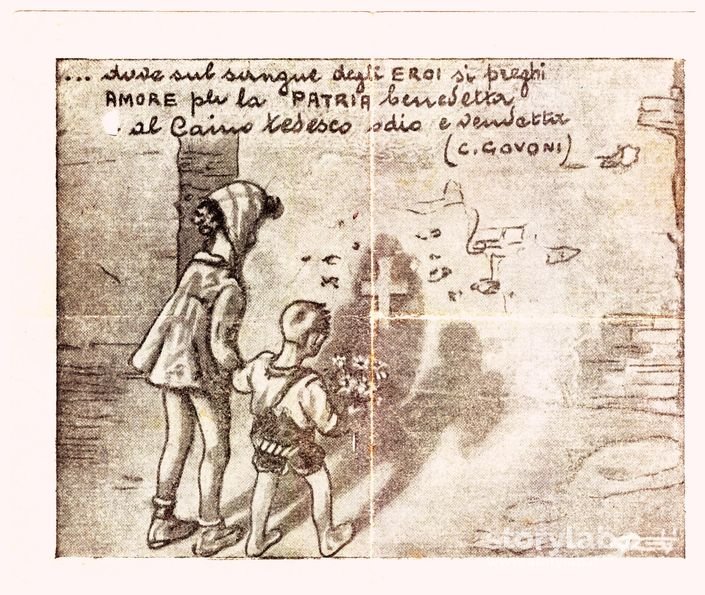 ... dove sul sangue degli EROI si preghi
AMORE per la PATRIA benedetta
al Caino tedesco odio e vendetta
(C. GOVONI)
storylab